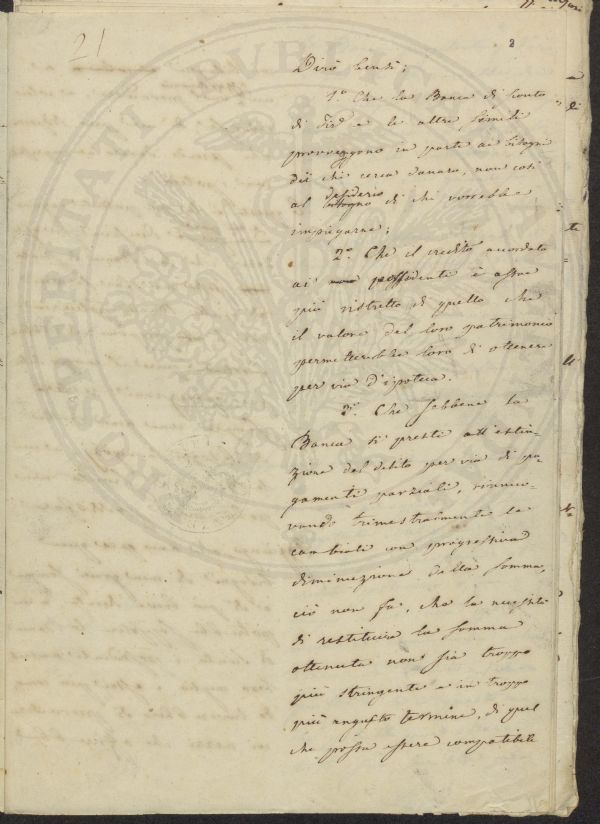 21
2
Dirò bensì;
1º Che la Banca di Sconto
di Firᵉ e le altre simili
provveggono in parte ai bisogni
di chi cerca danaro, non così
al desiderio di chi vorrebbe
impiegarne;
2º Che il credito accordato
ai possidenti è assai
più ristretto di quello che
il valore del loro patrimonio
permetterebbe loro di ottenere
per via d'ipoteca.
3º Che sebbene la
Banca si presti all'estin-
zione del debito per via di pa-
gamenti parziali, rinnuo-
vando trimestralmente le
cambiali con progressiva
diminuzione della somma,
ciò non fa, che la necessità
di restituire la somma
ottenuta non sia troppo
più stringente e in troppo
più angusto termine, di quel
che possa essere compatibile